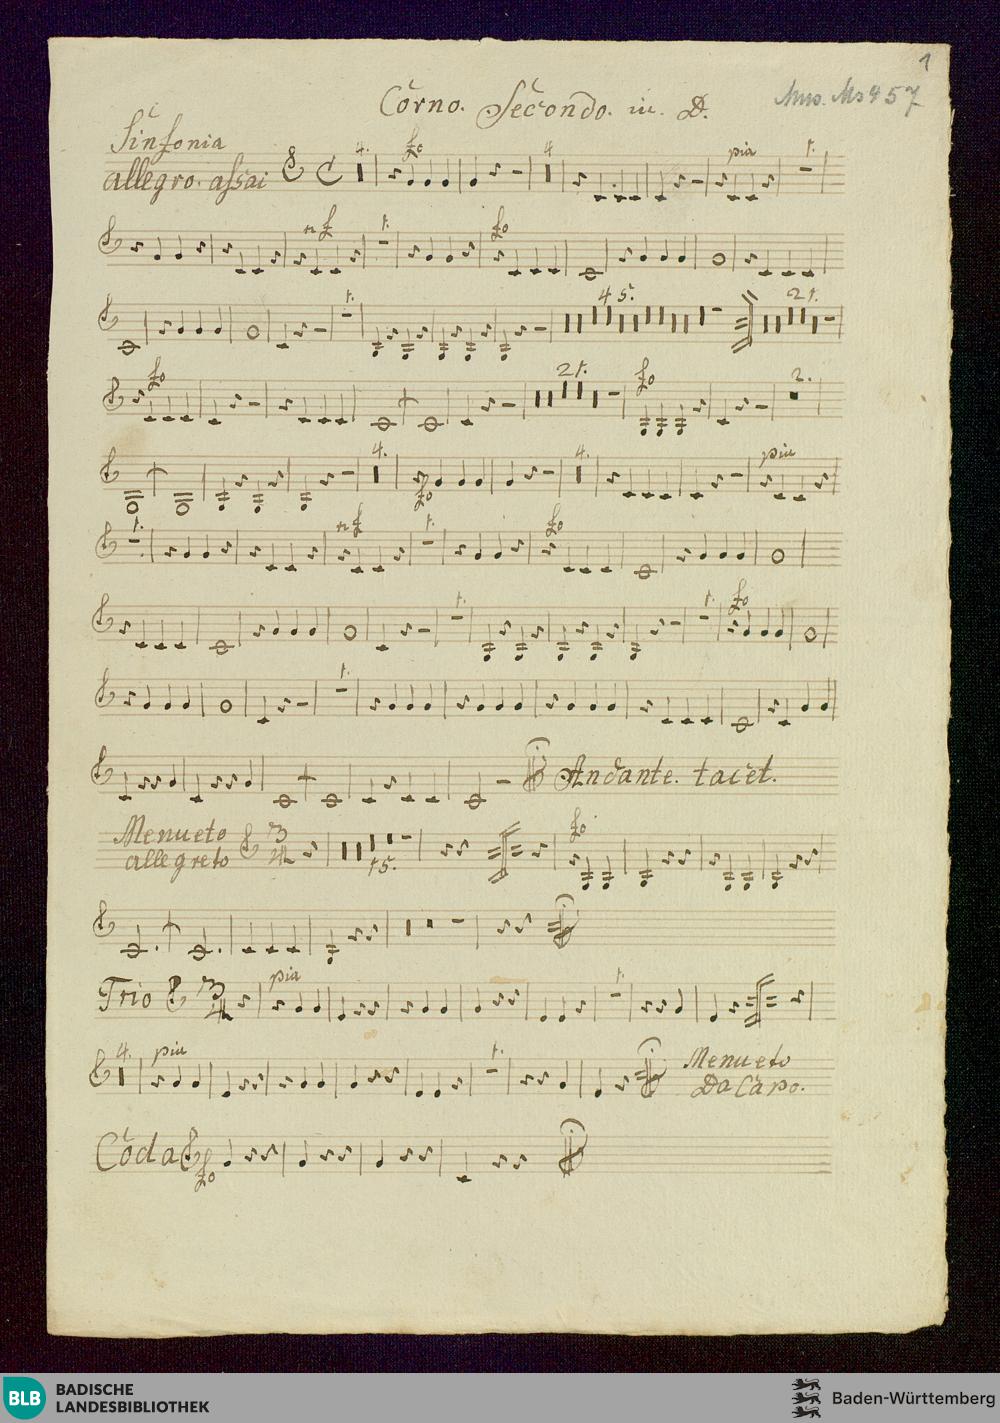 1
Corno. Secondo. in. D.
Mus. Ms 457
Sinfonia
allegro. assai
4. fo 4 pia 1.
nf 1. fo
1. 45. 21.
fo 21. fo 2.
4. fo 4. pia
1. nf 1. fo
1. 1. fo
1.
Andante. tacet.
Menueto
allegreto
3
4
15.
fo
Trio 3
4
pia 1.
4. pia 1.
Menueto
Da Capo.
Coda
fo
BLB
BADISCHE
LANDESBIBLIOTHEK
Baden-Württemberg